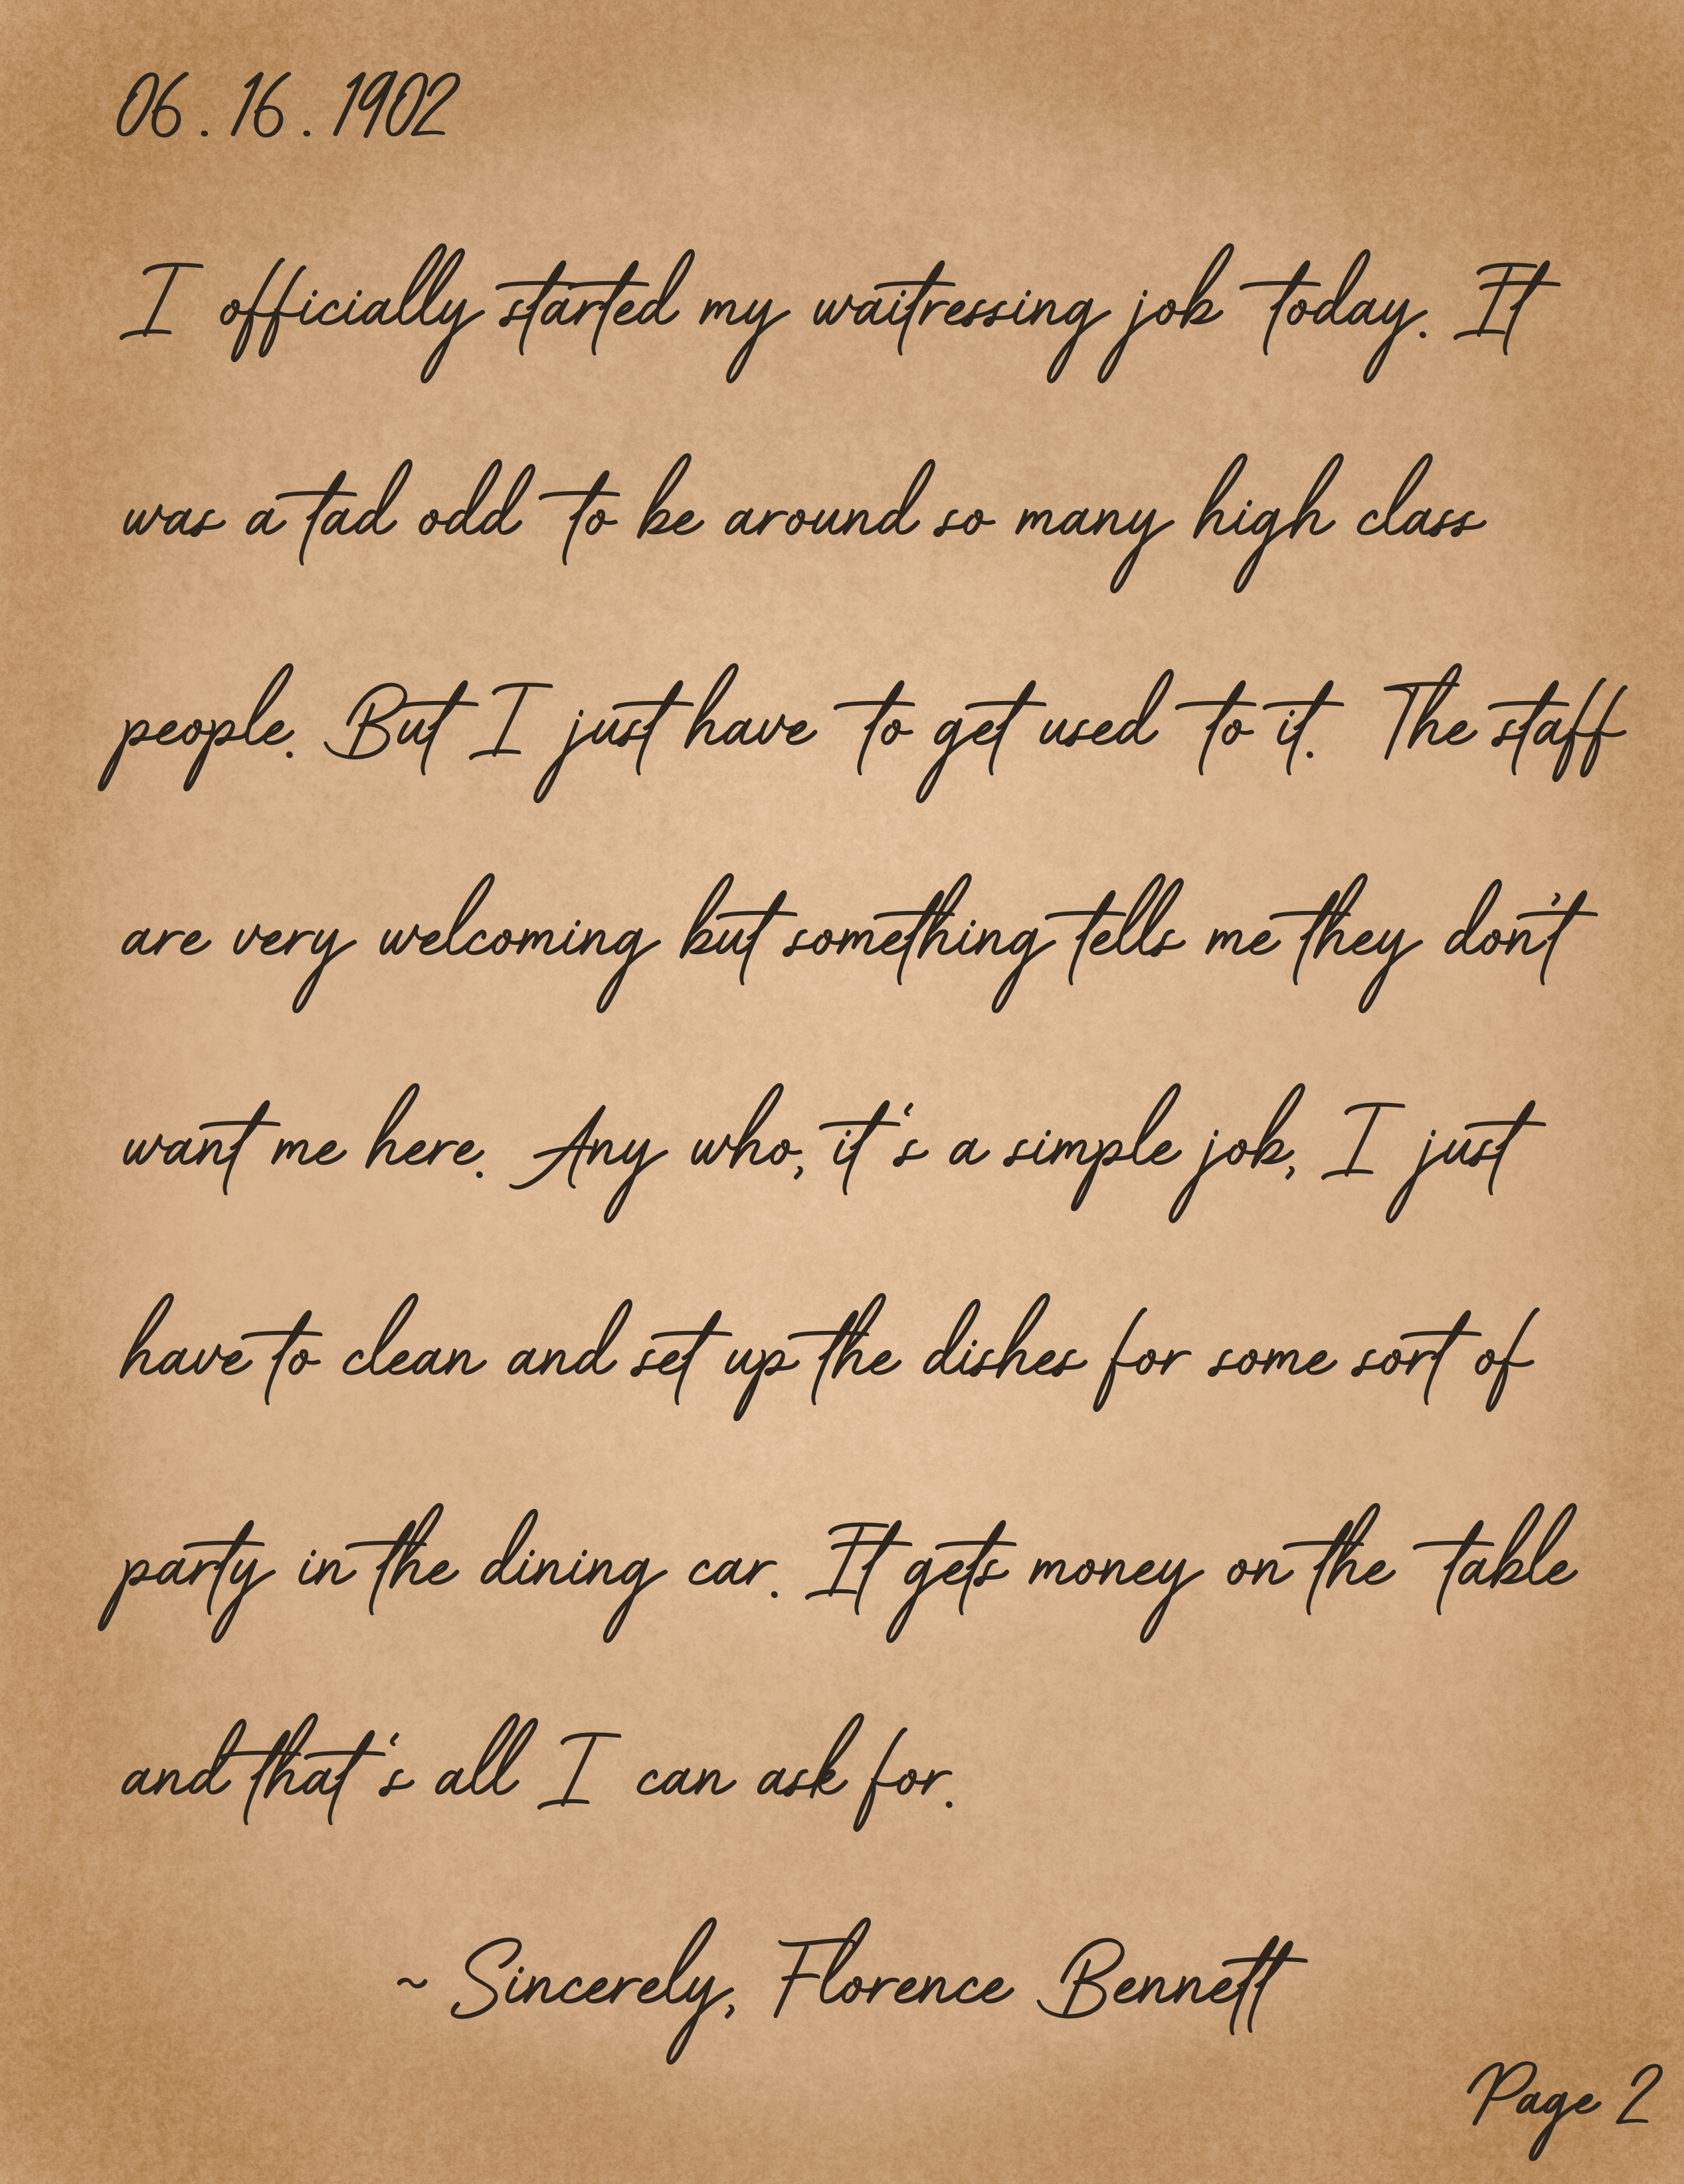 06.16.1902
I officially started my waitressing job today. It
was a tad odd to be around so many high class
people. But I just have to get used to it. The staff
are very welcoming but something tells me they don't
want me here. Any who, it‘s a simple job, I just
have to clean and set up the dishes for some sort of
party in the dining car. It gets money on the table
and that‘s all I can ask for.
~ Sincerely, Florence Bennett
Page 2